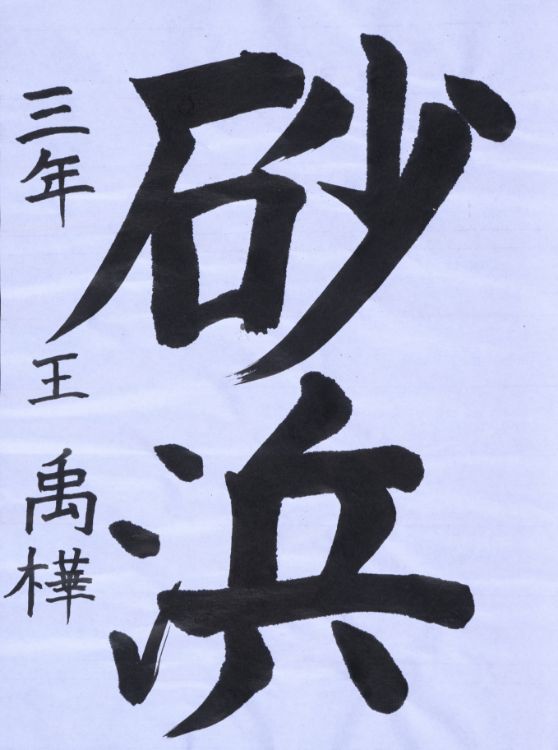 砂浜
三年 王 禹樺